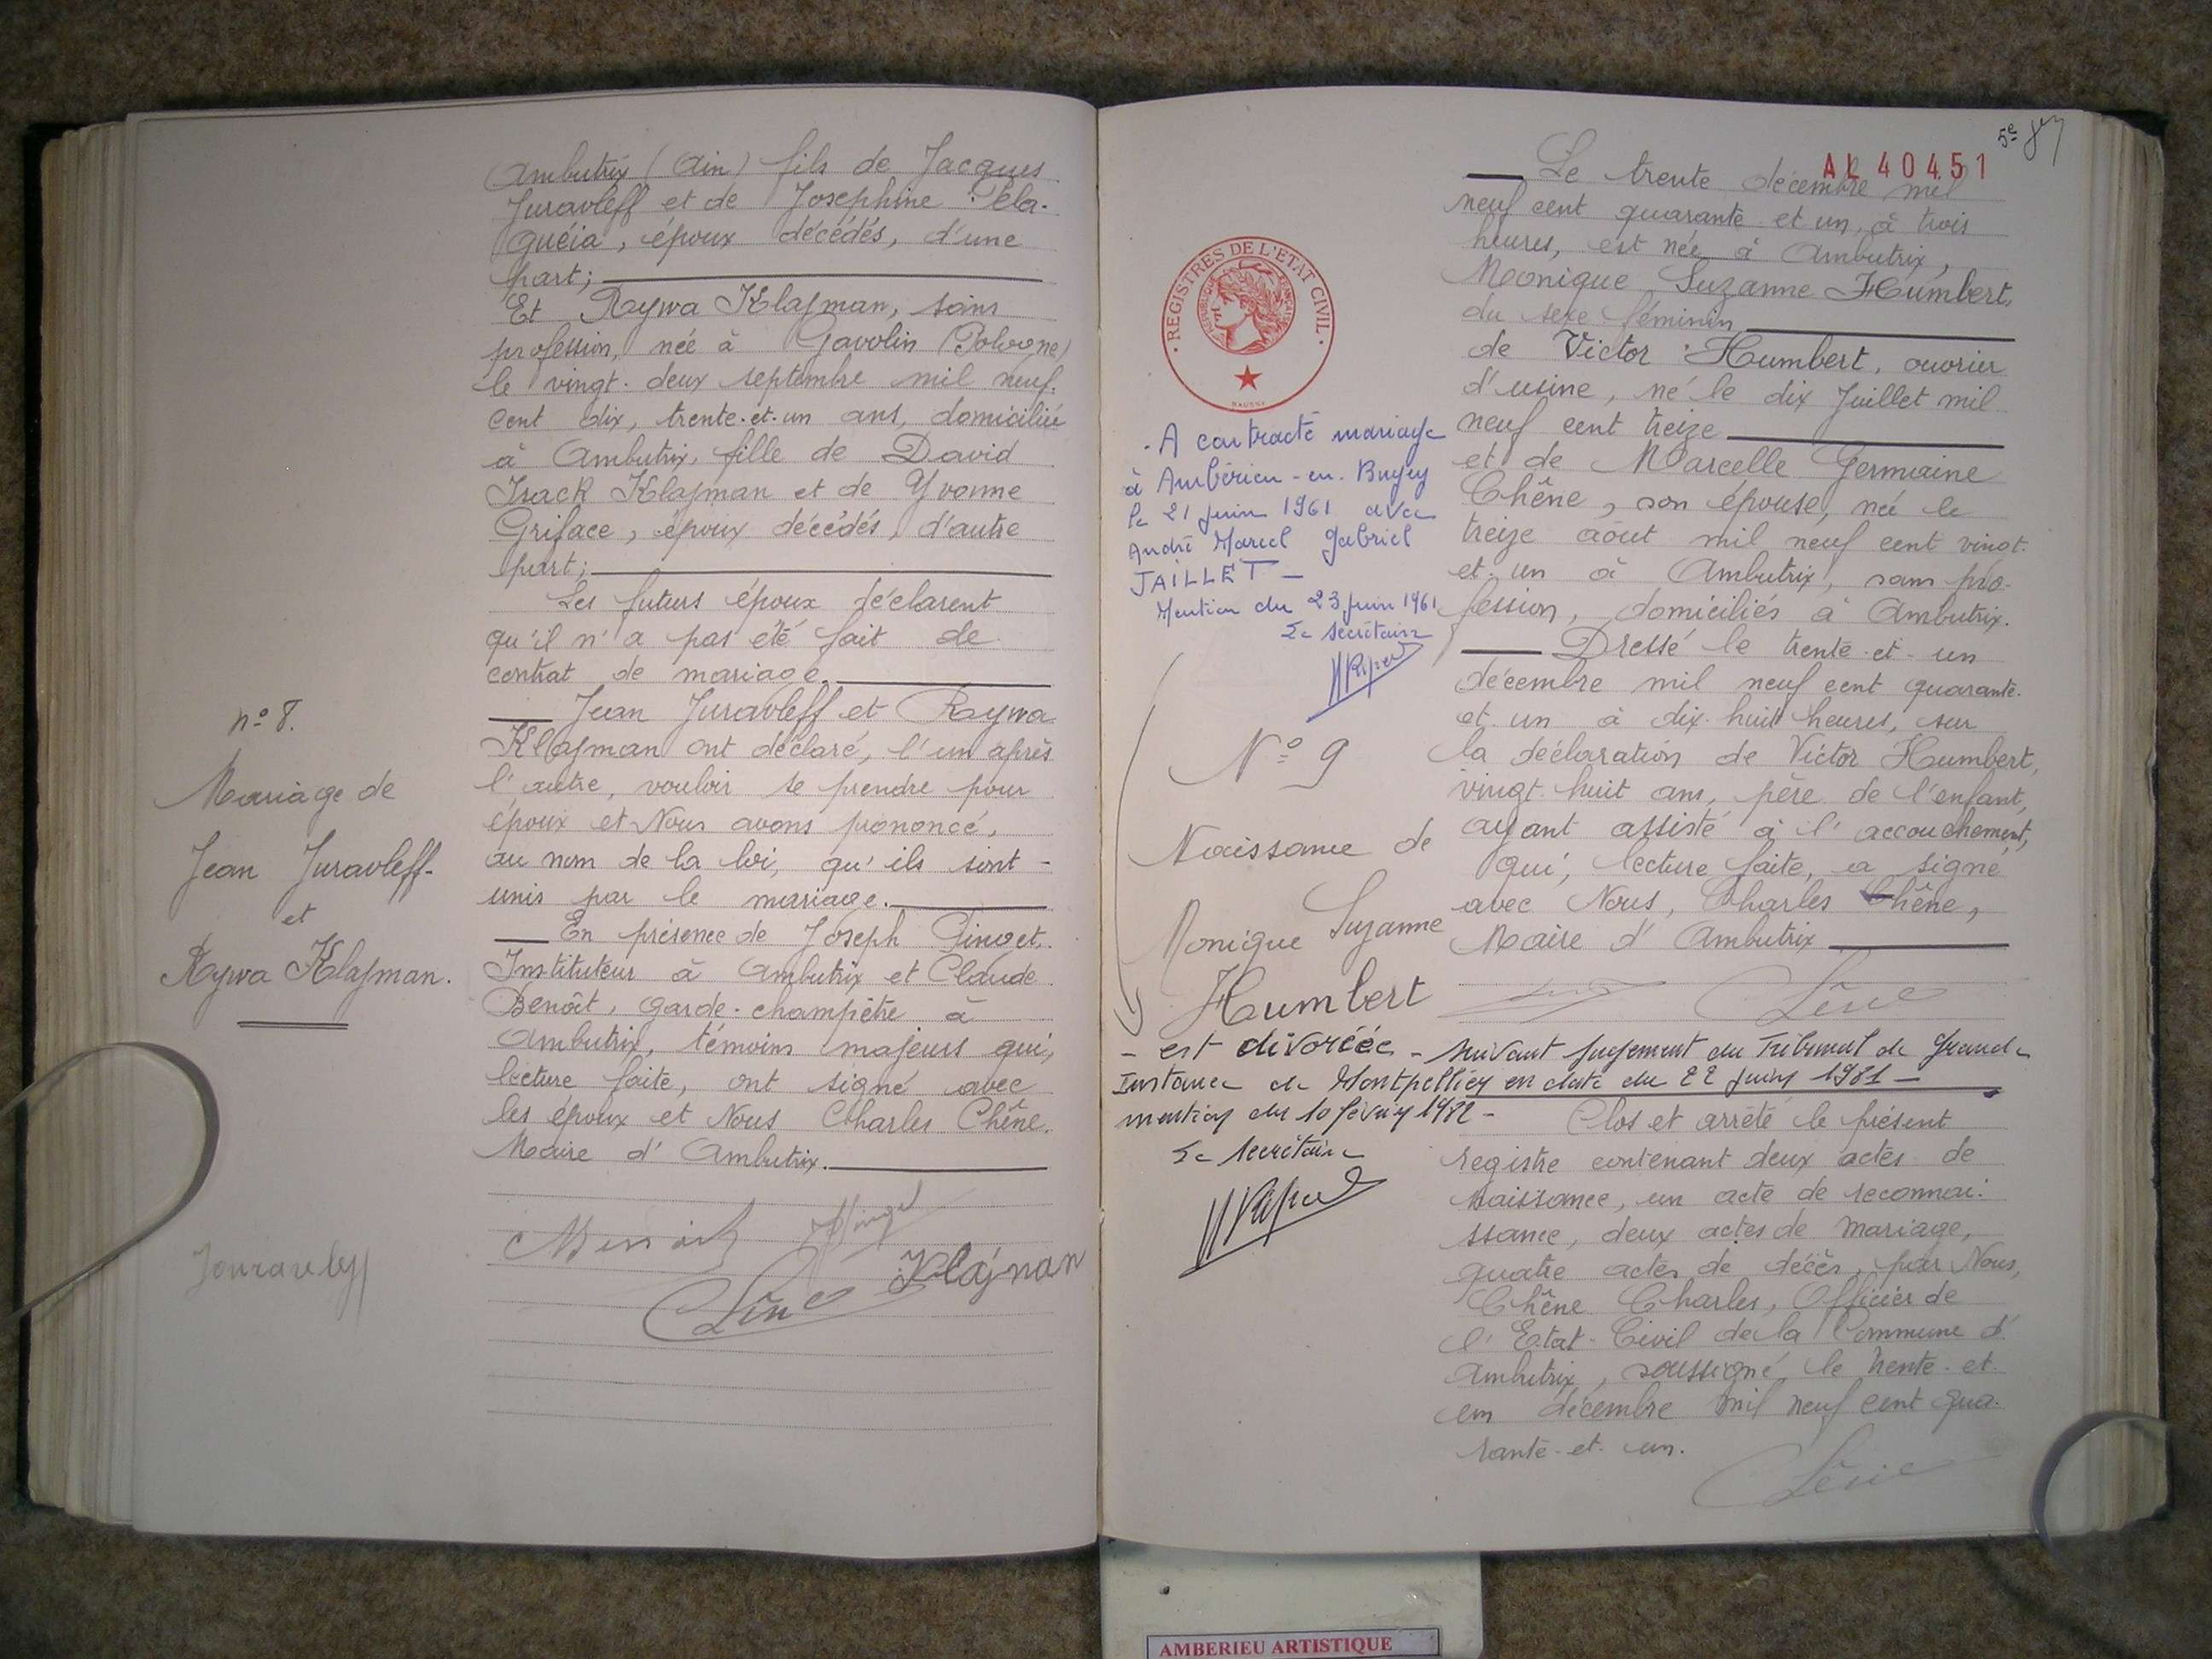 Ambutrix (Ain) fils de Jacques
Juravleff et de Josephine Pela-
guéia, époux décédés, d'une
part;
Et Raywa Klajman, sans
profession, née à Gavolin (Pologne)
le vingt-deux septembre mil neuf-
cent dix, trente-et-un ans, domiciliée
à Ambutrix, fille de David
Isack Klajman et de Yvonne
Griface, époux décédés, d'autre
part;
Les futurs époux déclarent
qu'il n'a pas été fait de
contrat de mariage.
Jean Juravleff et Raywa
Klajman ont déclaré, l'un après
l'autre, vouloir se prendre pour
époux et Nous avons prononcé,
au nom de la loi, qu'ils sont
unis par le mariage.
En présence de Joseph Pinget,
Instituteur à Ambutrix et Claude
Benoît, garde-champêtre à
Ambutrix, témoins majeurs qui,
lecture faite, ont signé avec
les époux et Nous Charles Chêne.
Maire d'Ambutrix.
n° 8.
Mariage de
Jean Juravleff-
et
Raywa Klajman.
Jouravleff
Benoit
Pinget
Klajman
Chêne
5e
AL 40451
Le trente décembre mil
neuf cent quarante et un, à trois
heures, est née à Ambutrix,
Monique Suzanne Humbert,
du sexe féminin
de Victor Humbert, ouvrier
d'usine, né le dix Juillet mil
neuf cent treize
et de Marcelle Germaine
Chêne, son épouse, née le
treize août mil neuf cent vingt-
et-un à Ambutrix, sans pro-
fession, domiciliés à Ambutrix.
Dressé le trente-et-un
décembre mil neuf cent quarante-
et-un à dix-huit heures, sur
la déclaration de Victor Humbert,
vingt-huit ans, père de l'enfant,
ayant assisté à l'accouchement,
qui, lecture faite, a signé
avec Nous, Charles Chêne,
Maire d'Ambutrix
Chêne
REGISTRES DE L'ETAT CIVIL
REPUBLIQUE FRANÇAISE
- A contracté mariage
à Ambérieu-en-Bugey
le 21 juin 1961 avec
André Marcel Gabriel
JAILLET -
Mention du 23 juin 1961
Le secrétaire
N° 9
Naissance de
Monique Suzanne
Humbert
- est divorcée - suivant jugement du Tribunal de Grande
Instance de Montpellier en date du 22 juin 1981 -
mention du 10 février 1982 -
Le secrétaire
Clos et arrêté le présent
registre contenant deux actes de
naissance, un acte de reconnai-
ssance, deux actes de mariage,
quatre actes de décès, par Nous,
Chêne Charles, Officier de
l'Etat-Civil de la Commune d'
Ambutrix, soussigné le trente-et-
un décembre mil neuf cent qua-
rante-et-un.
Chêne
AMBERIEU ARTISTIQUE